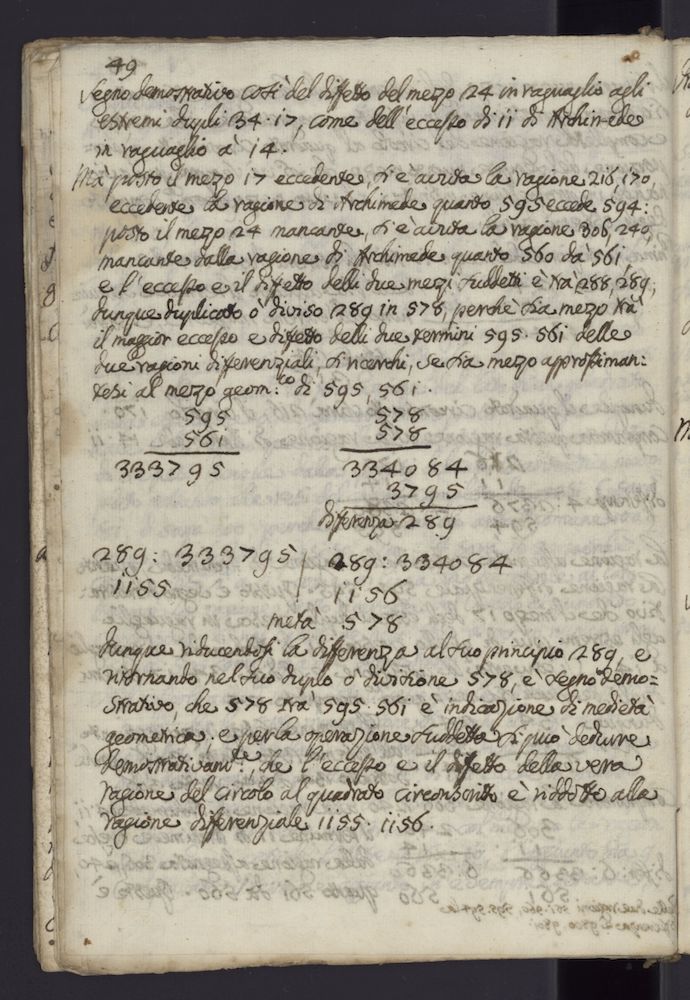 49
segno demostrativo così del difetto del mezzo 24 in raguaglio agli
estremi dupli 34. 17, come dell'eccesso di 11 di Archimede
in raguaglio a 14.
Mà posto il mezzo 17 eccedente, si è avuta la ragione 216, 170
eccedente la ragione di Archimede quanto 595 eccede 594:
posto il mezzo 24 mancante, si è avuta la ragione 306, 240,
mancante dalla ragione di Archimede quanto 560 da 561
e l'eccesso e il difetto delli due mezzi suddetti è trà 288, 289,
dunque duplicato ò diviso 289 in 578, perchè sia mezzo trà
il maggior eccesso e difetto delli due termini 595. 561 delle
due ragioni diferenziali, si ricerchi, se sia mezzo approssiman:
tesi al mezzo geom:co di 595, 561.
595 578
561 578
333795 334084
3795
diferenza 289
289: 333795 / 289: 334084
1155 1156
metà 578
dunque riducendosi la differenza al suo principio 289, e
ritornando nel suo duplo ò divisione 578, è segno demo=
strativo, che 578 trà 595. 561 è indicazione di medietà
geometrica. e per la operazione suddetta si può dedurre
demostrativam.te, che l'eccesso e il difetto della vera
ragione del circolo al quadrato circonscritto è ridotto alla
ragione diferenziale 1155. 1156.